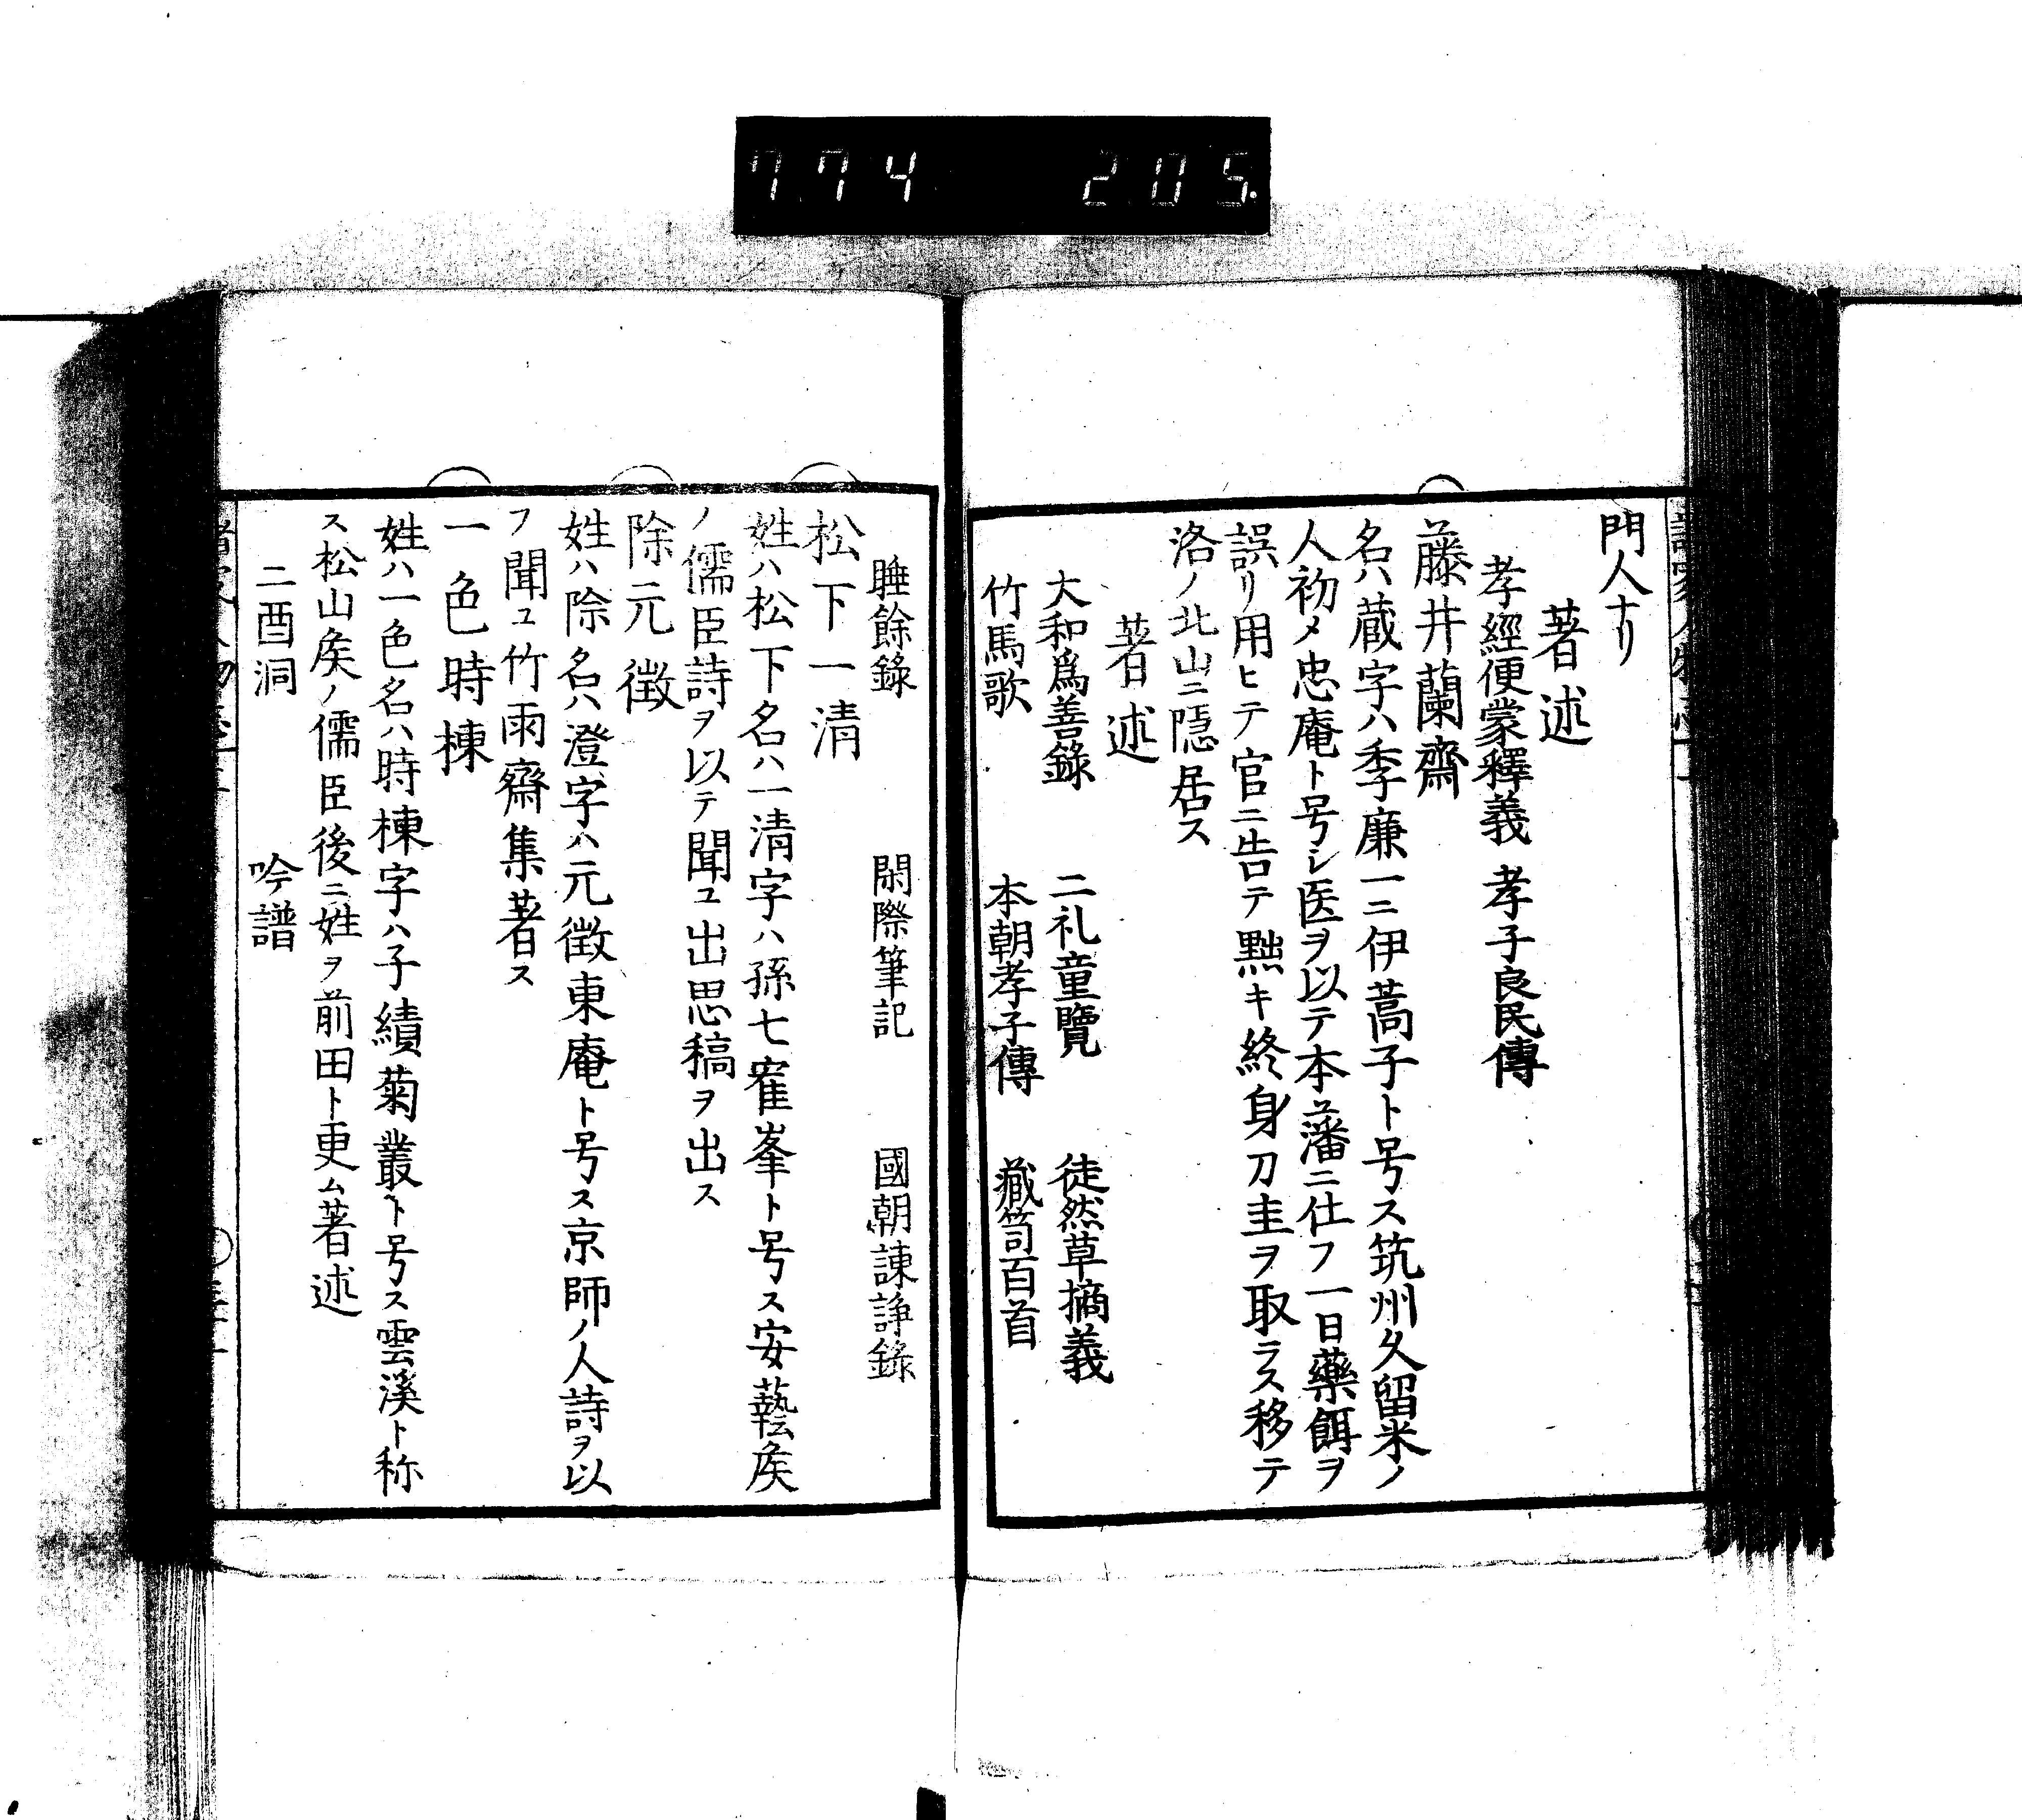 774 205
門人ナリ
著述
孝經便蒙釋義 孝子良民傳
藤井蘭齋
名ハ蔵字ハ季廉一ニ伊蒿子ト号ス筑州久留米ノ
人初メ忠庵ト号シ医ヲ以テ本藩ニ仕フ一日藥餌ヲ
誤リ用ヒテ官ニ告テ黜キ終身刀圭ヲ取ラス移テ
洛ノ北山ニ隱居ス
著述
大和爲善錄 二礼童覽 徒然草摘義
竹馬歌 本朝孝子傳 蔵笥百首
睡餘錄 閑際筆記 國朝諌諍錄
松下一清
姓ハ松下名ハ一清字ハ孫七寉峯ト号ス安藝矦
ノ儒臣詩ヲ以テ聞ユ出思稿ヲ出ス
除元徴
姓ハ除名ハ澄字ハ元徴東庵ト号ス京師ノ人詩ヲ以
フ聞ユ竹雨齋集著ス
一色時棟
姓ハ一色名ハ時棟字ハ子績菊叢ト号ス雲溪ト称
ス松山矦ノ儒臣後ニ姓ヲ前田ト更ム著述
二酉洞 吟譜